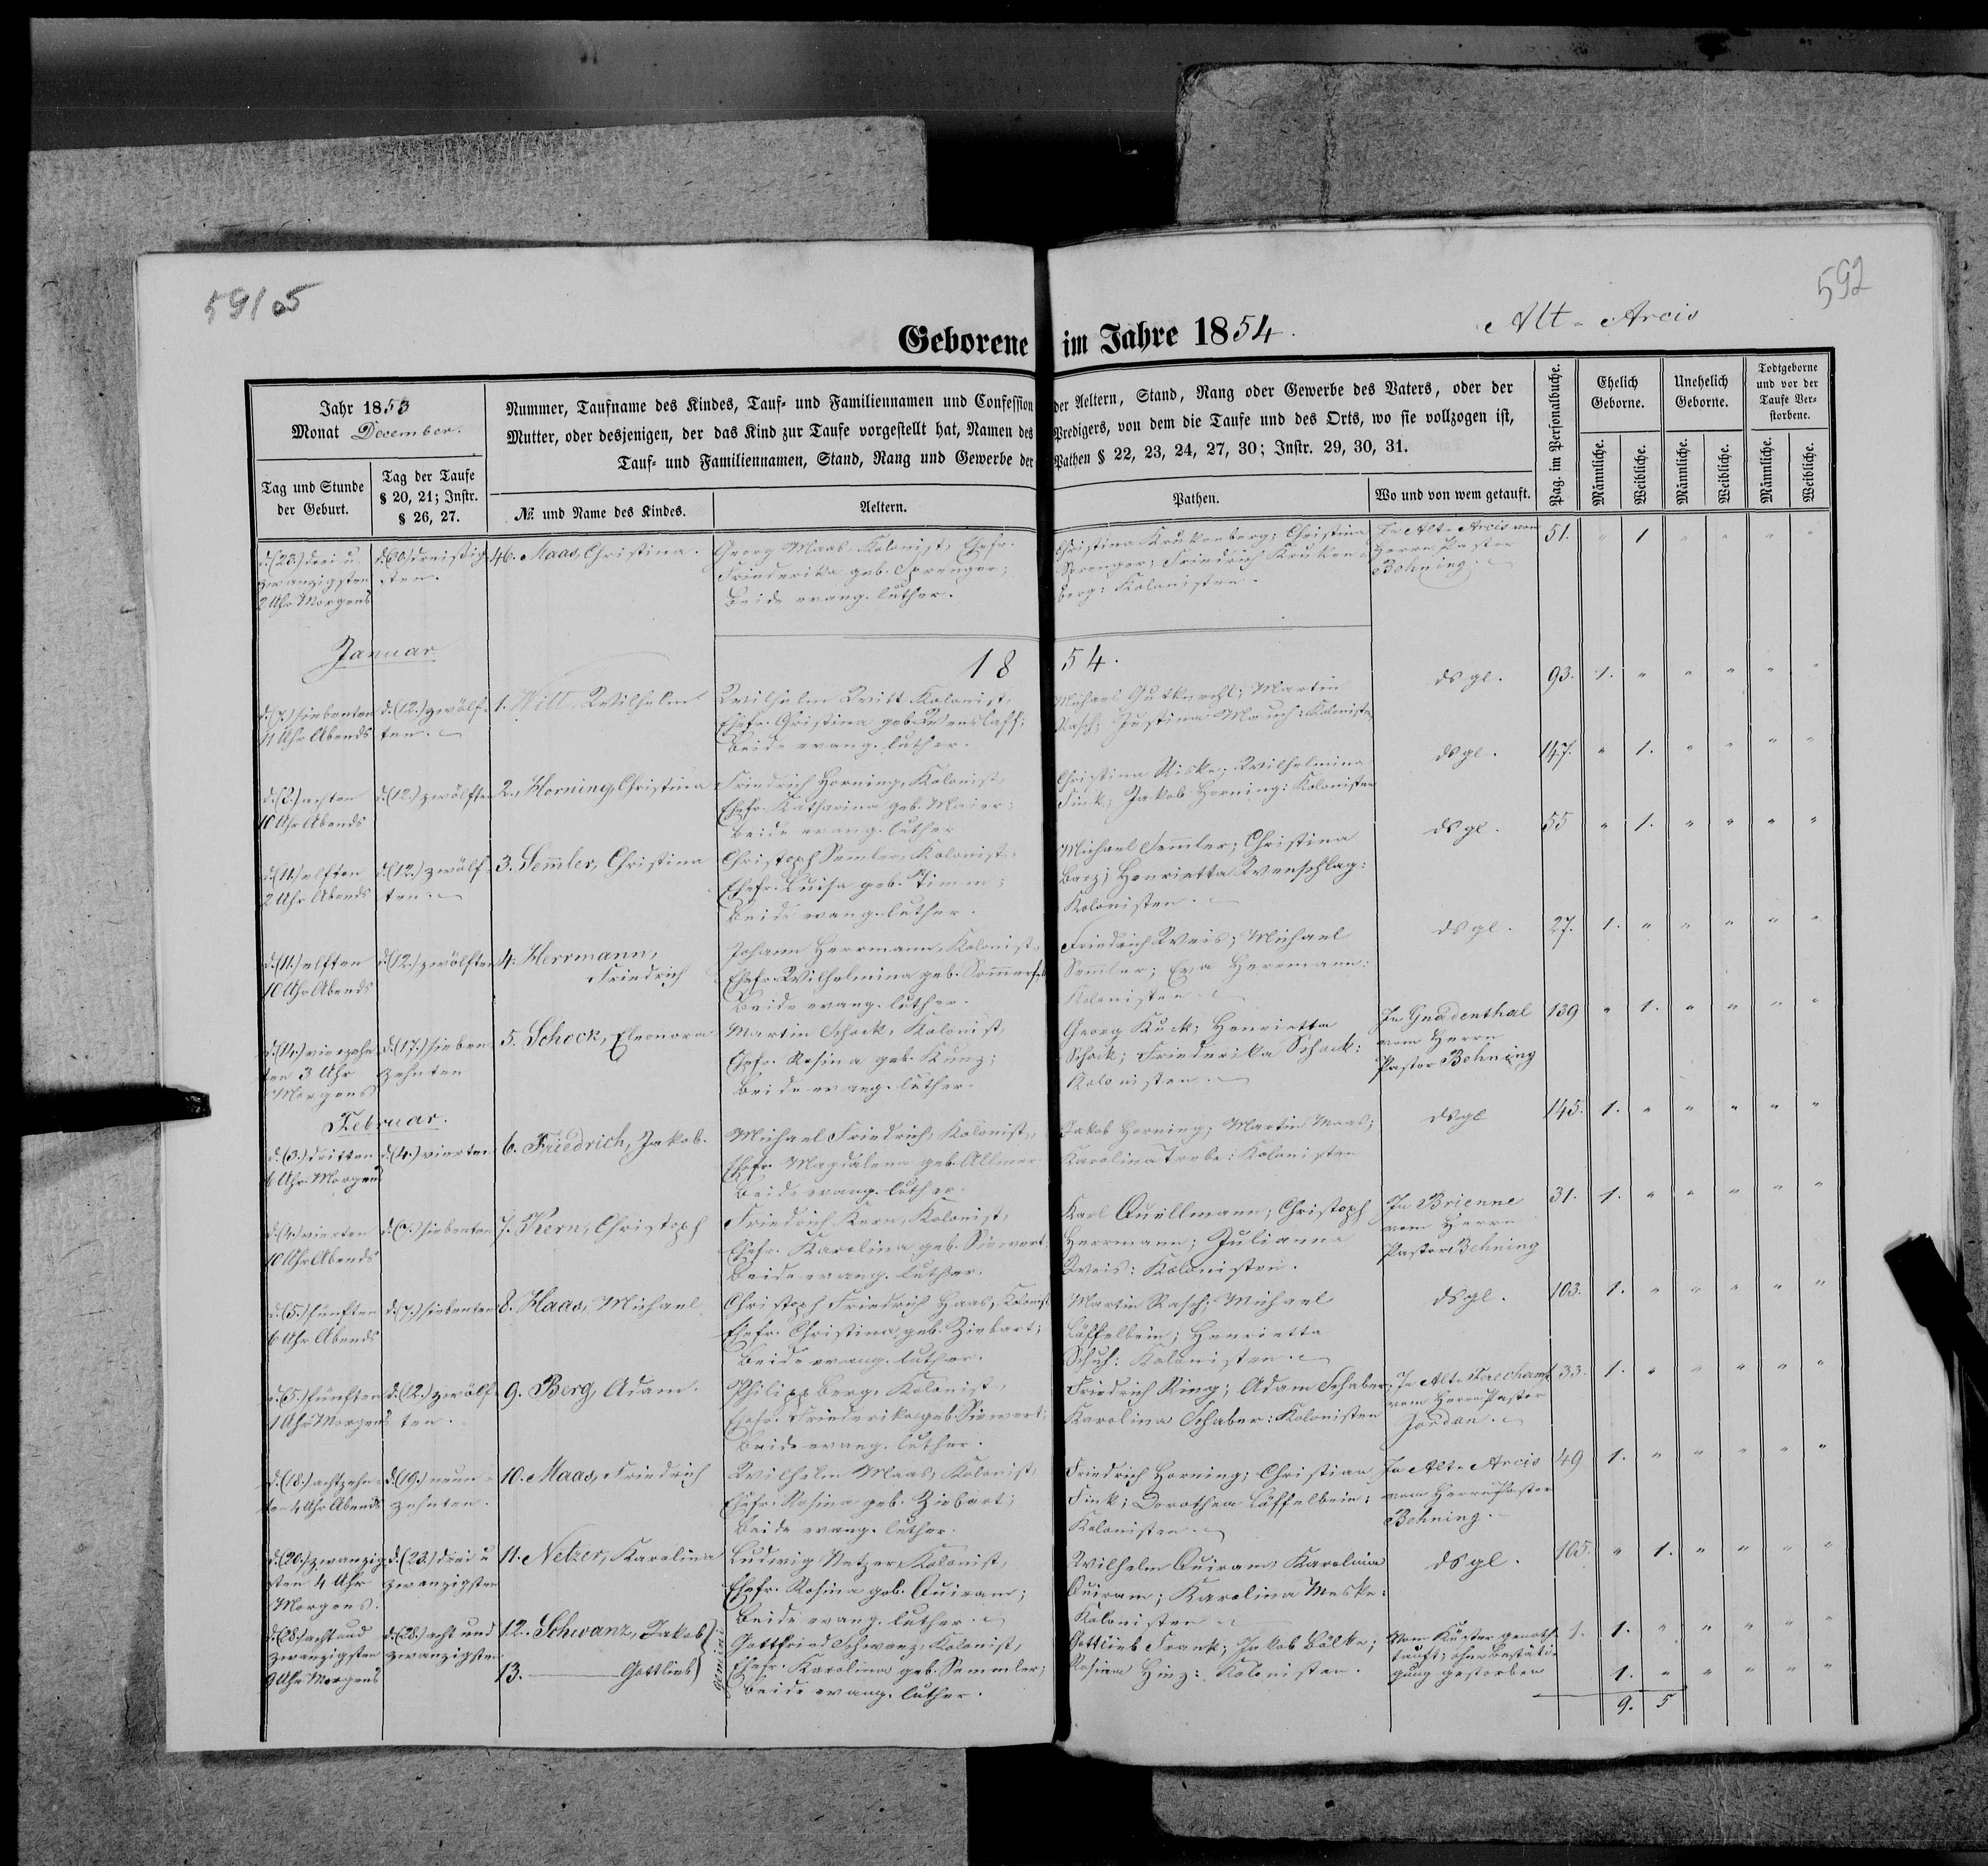 591 05
592
Geborene im Jahre 1854.
Alt-Arcis
Jahr 1853
Monat December.
Tag und Stunde
der Geburt.
Tag der Taufe
§ 20, 21; Instr.
§ 26, 27.
Nummer, Taufname des Kindes, Tauf- und Familiennamen und Confession der Aeltern, Stand, Rang oder Gewerbe des Vaters, oder der
Mutter, oder desjenigen, der das Kind zur Taufe vorgestellt hat, Namen des Predigers, von dem die Taufe und des Orts, wo sie vollzogen ist,
Tauf- und Familiennamen, Stand, Rang und Gewerbe der Pathen § 22, 23, 24, 27, 30; Instr. 29, 30, 31.
№ und Name des Kindes.
Aeltern.
Pathen.
Wo und von wem getauft.
Pag. im Personalbuche.
Ehelich
Geborne.
Unehelich
Geborne.
Todtgeborne
und vor der
Taufe Ver-
storbene.
Männliche.
Weibliche.
Männliche.
Weibliche.
Männliche.
Weibliche.
d. (23.) drei u.
zwanzigsten
2 Uhr Morgens
d. (30.) dreißig-
sten.
46. Maas, Christina.
Georg Maas, Kolonist, Ehefr.
Friederika geb. Sprenger;
beide evang. luther.
Christina Krukenberg; Christina
Sprenger; Friedrich Kruken-
berg: Kolonisten.
In Alt-Arcis vom
Herrn Pastor
Behning.
51. " 1 " " " "
Januar
1854.
d. (7.) siebenten
11 Uhr Abends
d. (12.) zwölf-
ten.
1. Witt, Wilhelm
Wilhelm Witt, Kolonist,
Ehefr. Christina geb. Wenslaff;
beide evang. luther.
Michael Gutknecht; Martin
Rasch; Justina Mauch: Kolonisten
dsgl. 93. 1. " " " " "
d. (8.) achten
10 Uhr Abends
d. (12.) zwölften
2. Horning, Christina
Friedrich Horning, Kolonist,
Ehefr. Katharina geb. Maier;
beide evang. luther
Christina Riske; Wilhelmina
Fink; Jakob Horning: Kolonisten
dsgl. 147. " 1. " " " "
d. (11.) elften
2 Uhr Abends
d. (12.) zwölf-
ten.
3. Semler, Christina
Christoph Semler, Kolonist,
Ehefr. Luisa geb. Timm;
beide evang. luther.
Michael Semler; Christina
Barz; Henrietta Wenschlag:
Kolonisten.
dsgl. 55 " 1. " " " "
d. (11.) elften
10 Uhr Abends
d. (12.) zwölften
4. Herrmann,
Friedrich
Johann Herrmann, Kolonist,
Ehefr. Wilhelmina geb. Sommerfeld
beide evang. luther.
Friedrich Weis; Michael
Semler; Eva Herrmann:
Kolonisten.
dsgl. 27. 1. " " " " "
d. (14.) vierzehn-
ten 3 Uhr
Morgens
d. (17.) sieben-
zehnten
5. Schock, Eleonora
Martin Schock, Kolonist,
Ehefr. Rosina geb. Kunz;
beide evang. luther.
Georg Kuck; Henrietta
Schock; Friederika Schock:
Kolonisten.
In Gnadenthal
vom Herrn
Pastor Behning
139 " 1. " " " "
Februar.
d. (3.) dritten
6 Uhr Morgens
d. (4.) vierten
6. Friedrich, Jakob.
Michael Friedrich, Kolonist,
Ehefr. Magdalena geb. Allmer
beide evang. luther.
Jakob Horning; Martin Maas;
Karolina Trebe: Kolonisten
dsgl 145. 1. " " " " "
d. (4.) vierten
10 Uhr Abends
d. (7.) siebenten
7. Kern, Christoph
Friedrich Kern, Kolonist,
Ehefr. Karolina geb. Siewert
beide evang. luther.
Karl Quellmann; Christoph
Herrmann; Julianna
Weis: Kolonisten.
In Brienne
vom Herrn
Pastor Behning
31. 1. " " " " "
d. (5.) fünften
6 Uhr Abends
d. (7.) siebenten
8. Haas, Michael
Christoph Friedrich Haas, Kolonist
Ehefr. Christina geb. Ziebart;
beide evang. luther.
Martin Rasch; Michael
Löffelbein; Henrietta
Schuh: Kolonisten.
dsgl. 103. 1. " " " " "
d. (5.) fünften
1 Uhr Morgens
d. (12.) zwölf-
ten.
9. Berg, Adam.
Philipp Berg, Kolonist,
Ehefr. Friederika geb. Siewert;
beide evang. luther.
Friedrich Ring; Adam Schaber;
Karolina Schaber: Kolonisten
In Alt-Ferechamp.
vom Herrn Pastor
Jordan.
33. 1. " " " " "
d. (18.) achtzehn-
ten 4 Uhr Abends
d. (19.) neun-
zehnten.
10. Maas, Friedrich
Wilhelm Maas, Kolonist,
Ehefr. Rosina geb. Ziebart;
beide evang. luther.
Friedrich Horning; Christian
Fink; Dorothea Löffelbein:
Kolonisten.
In Alt-Arcis
vom Herrn Pastor
Behning.
49 1. " " " " "
d. (20.) zwanzig-
sten 4 Uhr
Morgens.
d. (23.) drei u
zwanzigsten
11. Netzer, Karolina
Ludwig Netzer, Kolonist,
Ehefr. Rosina geb. Quiram;
beide evang. luther.
Wilhelm Quiram; Karolina
Quiram; Karolina Meske:
Kolonisten
dsgl. 105. " 1. " " " "
d. (28.) acht und
zwanzigsten
9 Uhr Morgens
d. (28.) acht und
zwanzigsten
12. Schwanz, Jakob
13. ——— Gottlieb
Gottfried Schwanz, Kolonist,
Ehefr. Karolina geb. Semmler;
beide evang. luther.
Gottlieb Frank; Jakob Bölke;
Rosina Hinz: Kolonisten.
Vom Küster genoth-
tauft; ohne Bestäti-
gung gestorben
1. 1. " " " " "
1. " " " " "
9. 5